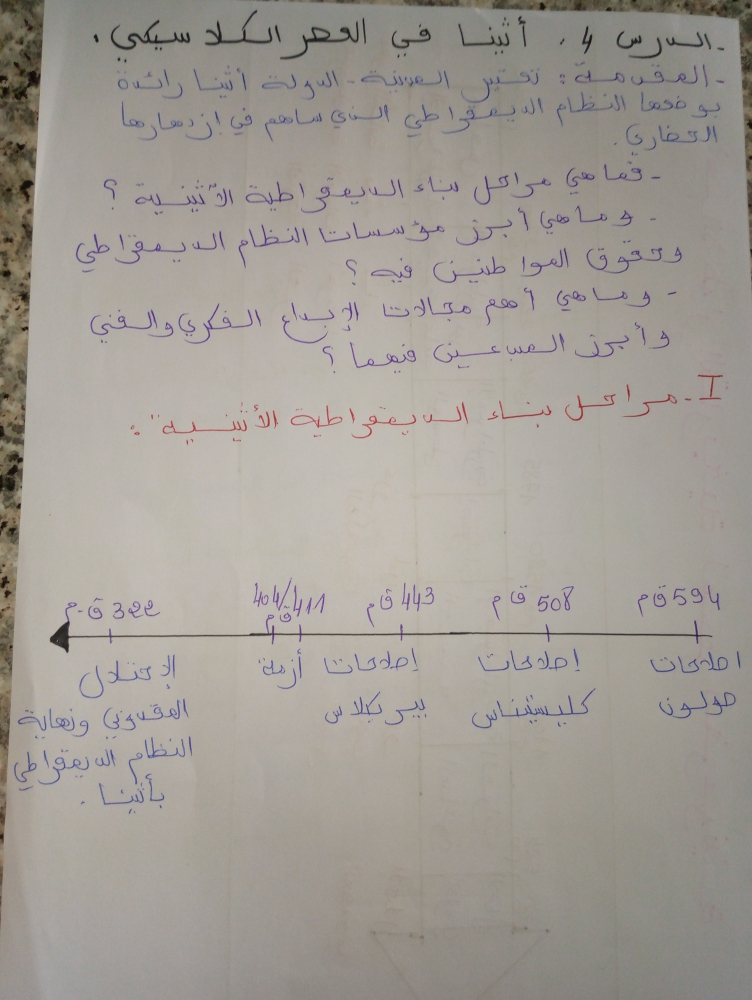 الدرس 4. أثينا في العصر الكلاسيكي.
- المقدمة: تعتبر المدينة - الدولة أثينا رائدة
بوضعها النظام الديمقراطي الذي ساهم في ازدهارها
الحضاري.
- فما هي مراحل بناء الديمقراطية الأثينية؟
- وما هي أبرز مؤسسات النظام الديمقراطي
وحقوق المواطنين فيه؟
- وما هي أهم مجالات الإبداع الفكري والفني
وأبرز المبدعين فيهما؟
I - مراحل بناء الديمقراطية الأثينية:
594 ق م
508 ق م
443 ق م
411/404 ق م
322 ق.م
اصلاحات
صولون
إصلاحات
كليستيناس
إصلاحات
بيريكلاس
أزمة
الإحتلال
المقدوني ونهاية
النظام الديمقراطي
بأثينا.